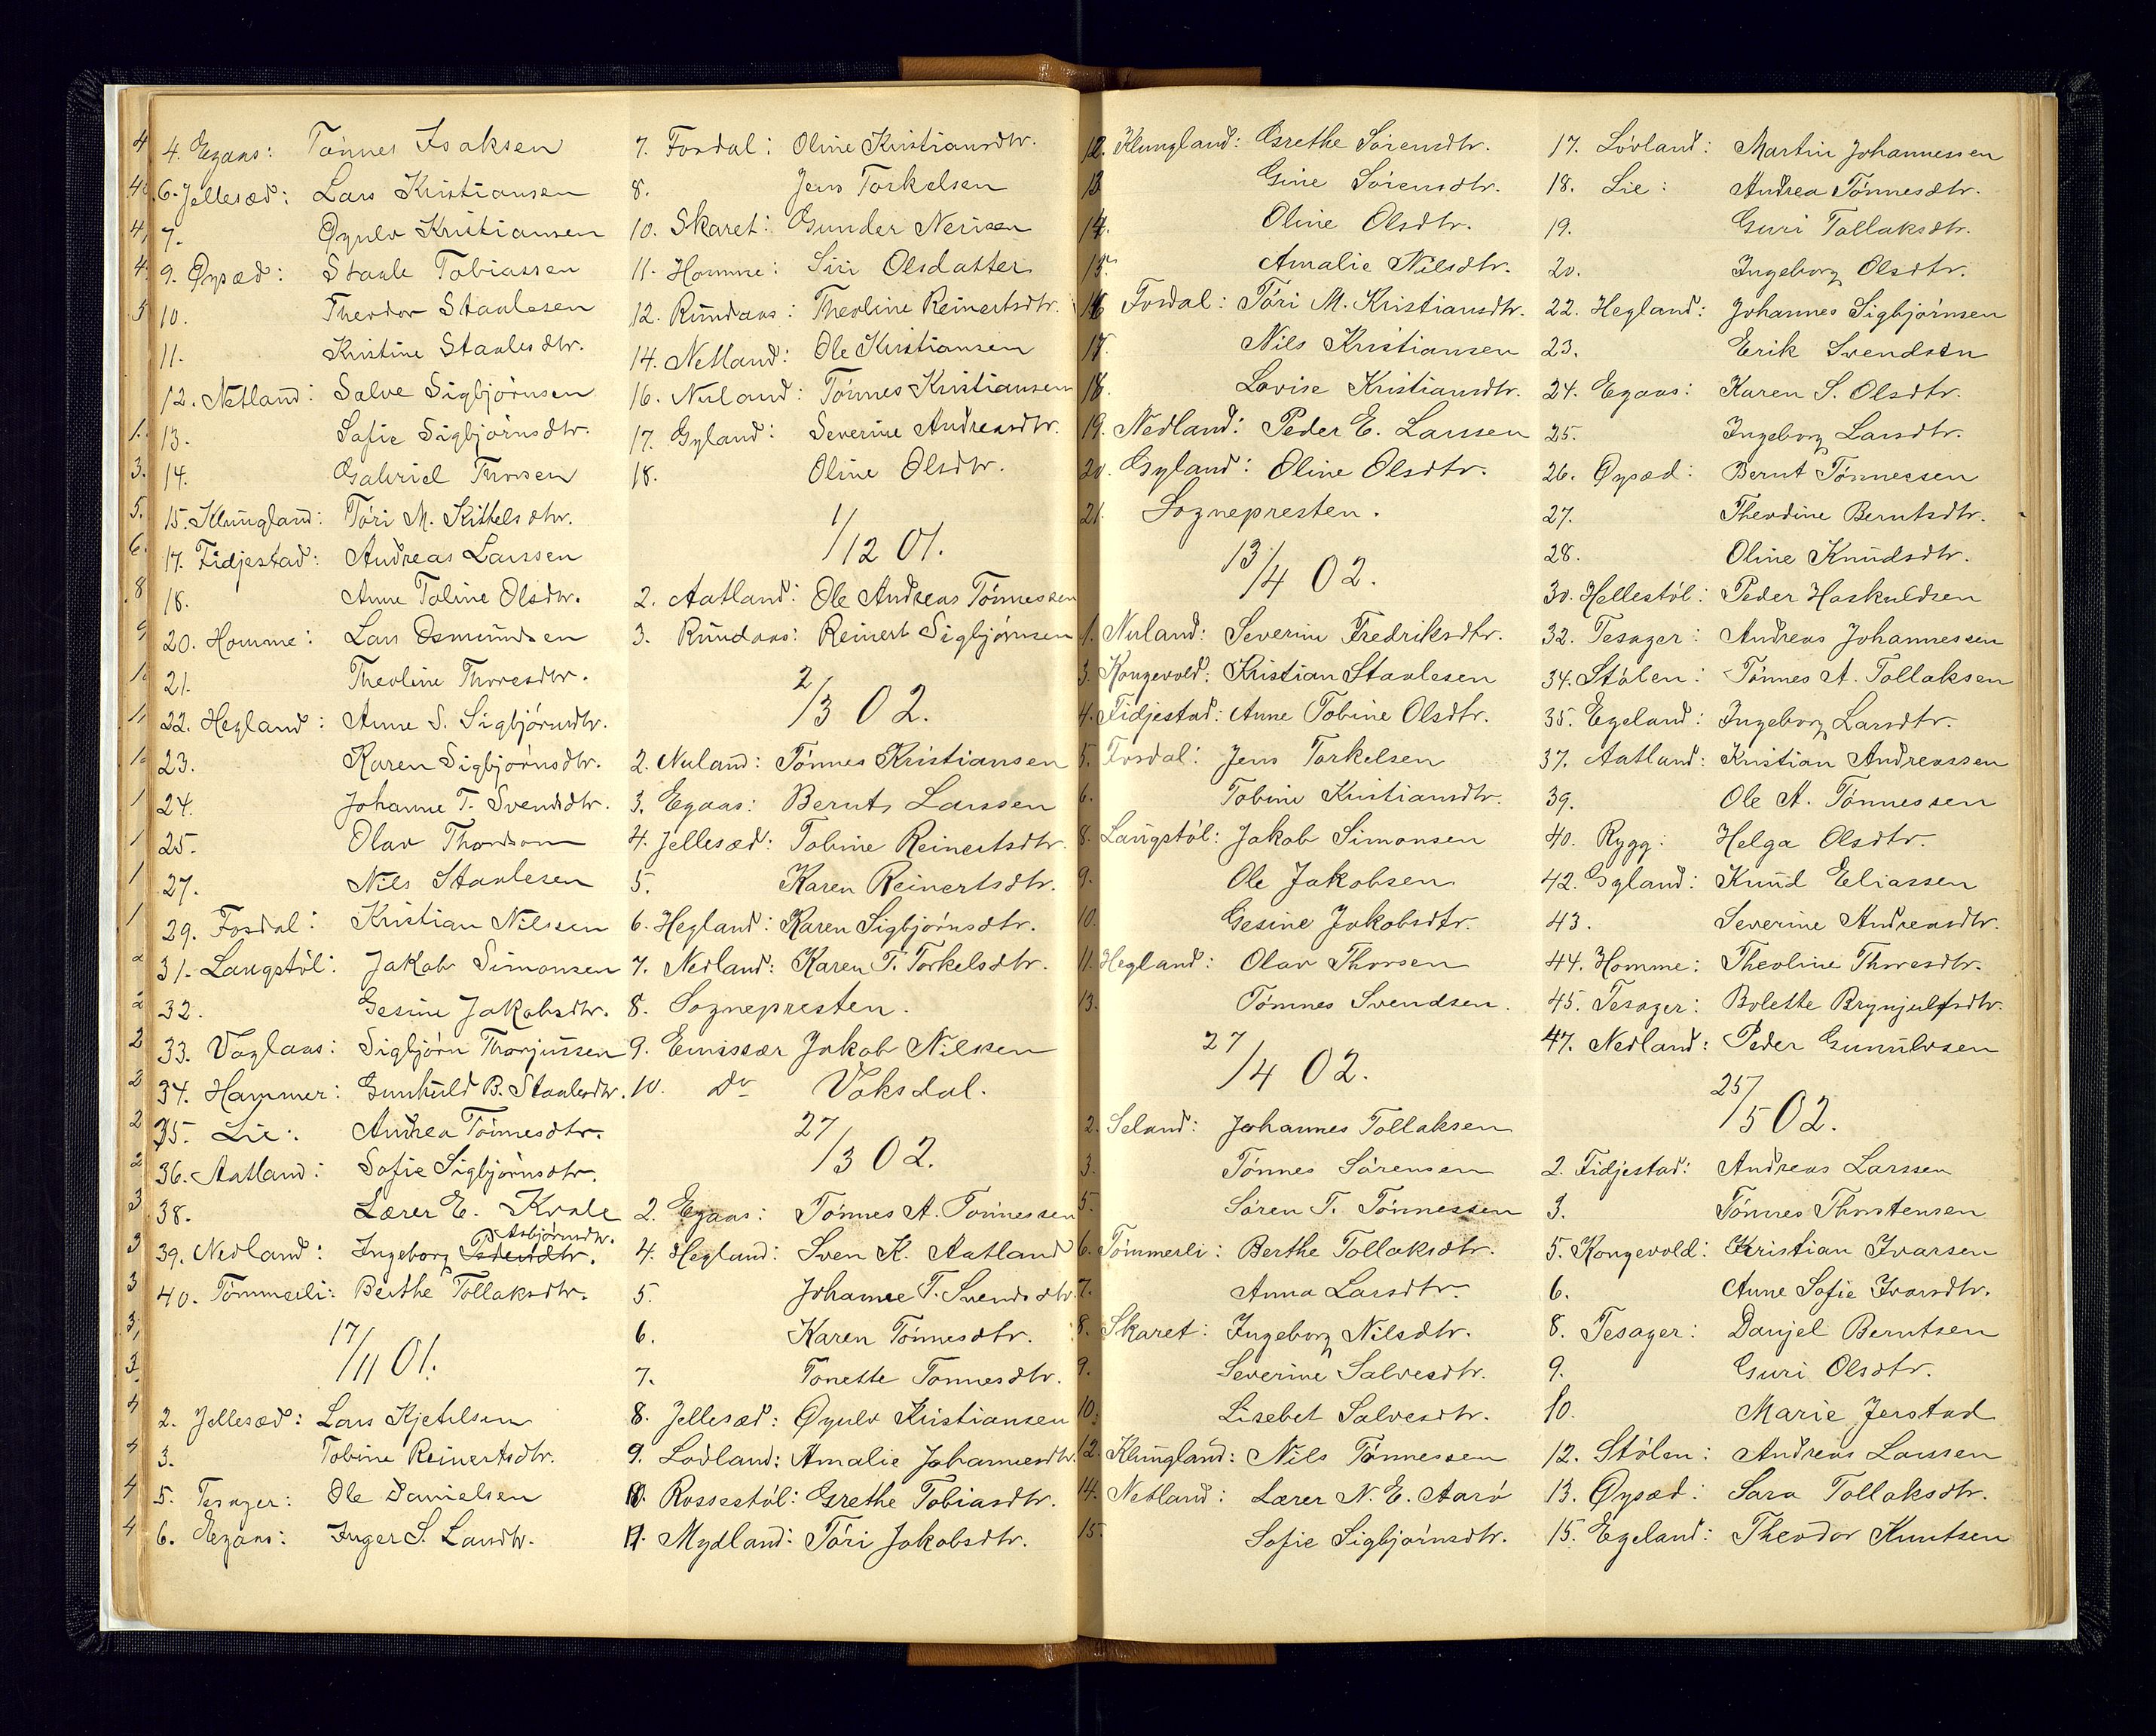 4. Egaas: Tønnes Isaksen
6. Jellesæd: Lars Kristiansen
7. Øyulv Kristiansen
9. Øysæd: Staale Tobiassen
10. Theodor Staalesen
11. Kristine Staalesdtr.
12. Netland: Salve Sigbjørnsen
13. Sofie Sigbjørnsdtr.
14. Gabriel Thorsen
15. Klungland: Tóri M. Kittelsdtr.
17. Fidjestad: Andreas Larssen
18. Anne Toline Olsdtr.
20. Homme: Lars Osmundsen
21. Theoline Thoresdtr.
22. Hegland: Anne S. Sigbjørnsdtr.
23. Karen Sigbjørnsdtr.
24. Johanne T. Svendsdtr.
25. Olav
27. Nils Staalesen
29. Fosdal: Kristian Nilssen
31. Langstól: Jakob Simonsen
32. Gesine Jakobsdtr.
33. Vaglaas: Sigbjørn Thorjussen
34. Hammer: Gunhuld B. Staalesdtr.
35. Lie: Andrea Tønnesdtr.
36. Aatland: Sofie Sigbjørnsdtr.
38. Lærer E. Kvale
Asbjørnsdtr.
39. Nedland: Ingeborg Pedersdtr.
40. Tømmerli: Berthe Tollaksdtr.
17/11 01.
2. Jellesæd: Lars Kjetilsen
3. Tobine Reinertsdtr.
5. Tesager: Ole Danielsen
6. Egaas: Inger S. Larsdtr.
7. Fosdal: Oline Kristiansdtr.
8. Jens Torkelsen
10. Skaret: Gunder Nerisen
11. Homme: Siri Olsdatter
12. Rundaas: Theoline Reinertsdtr.
14. Netland: Ole Kristiansen
16. Nuland: Tønnes Kristiansen
17. Gyland: Severine Andreasdtr.
18. Oline Olsdtr.
1/12 01.
2. Aatland: Ole Andreas Tønnessen
3. Rundaas: Reinert Sigbjørnsen
2/3 02.
2. Nuland: Tønnes Kristiansen
3. Egaas: Bernt Larssen
4. Jellesæd: Tobine Reinertsdtr.
5. Karen Reinertsdtr.
6. Hegland: Karen Sigbjørnsdtr.
7. Nedland: Karen T. Torkelsdtr.
8. Sognepresten.
9. Emissær Jakob Nilsen
10. Do Voksdal.
27/3 02.
2. Egaas: Tønnes A. Tønnessen
4. Hegland: Sven K. Aatland
5. Johanne T. Svendsdtr.
6. Karen Tønnesdtr.
7. Tonette Tønnesdtr.
8. Jellesæd: Øyulv Kristiansen
9. Lovland: Amalie Johannesdtr.
10. Rossestól: Grethe Tobiasdtr.
11. Mydland: Tóri Jakobsdtr.
12. Klungland: Grethe Sørensdtr.
13. Gine Sørensdtr.
14. Oline Olsdtr.
15. Amalie Nilsdtr.
16. Fosdal: Tóri M. Kristiansdtr.
17. Nils Kristiansen
18. Lovise Kristiansdtr.
19. Nedland: Peder E. Larssen
20. Gyland: Oline Olsdtr.
21. Sognepresten.
13/4 02.
1. Nuland: Severine Fredriksdtr.
3. Kongevold: Kristian Staalesen
4. Fidjestad: Anne Tobine Olsdtr.
5. Fosdal: Jens Torkelsen
6. Tobine Kristiansdtr.
8. Langstól: Jakob Simonsen
9. Ole Jakobsen
10. Gesine Jakobsdtr.
11. Hegland: Olav Thorsen
13. Tønnes Svendsen.
27/4 02.
2. Seland: Johannes Tollaksen
3. Tønnes Sørensen
5. Søren T. Tønnessen
6. Tømmerli: Berthe Tollaksdtr.
7. Anna Larsdtr.
8. Skaret: Ingeborg Nilsdtr.
9. Severine Salvesdtr.
10. Lisebet Salvesdtr.
12. Klungland: Nils Tønnessen
14. Netland: Lærer N. E. Aarø
15. Sofie Sigbjørnsdtr.
17. Lóvland: Martin Johannessen
18. Lie: Andrea Tønnesdtr.
19. Guri Tollaksdtr.
20. Ingeborg Olsdtr.
22. Hegland: Johannes Sigbjørnsen
23. Erik Svendsen
24. Egaas: Karen S. Olsdtr.
25. Ingeborg Larsdtr.
26. Øysæd: Bernt Tønnessen
27. Theodine Berntsdtr.
28. Oline Knudsdtr.
30. Hellestól: Peder Haskuldsen
32. Tesager: Andreas Johannessen
34. Stólen: Tønnes A. Tollaksen
35. Egeland: Ingeborg Larsdtr.
37. Aatland: Kristian Andreassen
39. Ole A. Tønnessen
40. Rygg: Helga Olsdtr.
42. Gyland: Knud Eliassen
43. Severine Andreasdtr.
44. Homme: Theoline Thoresdtr.
45. Tesager: Bolette Brynjulfsdtr.
47. Nedland: Peder Gunulvsen
25/5 02.
2. Fidjestad: Andreas Larssen
3. Tønnes Thorstensen
5. Kongevold: Kristian Ivarsen
6. Anne Sofie Ivarsdtr.
8. Tesager: Danjel Berntsen
9. Guri Olsdtr.
10. Marie Jerstad
12. Stólen: Andreas Larssen
13. Øysæd: Sara Tollaksdtr.
15. Egeland: Theodor Knutsen